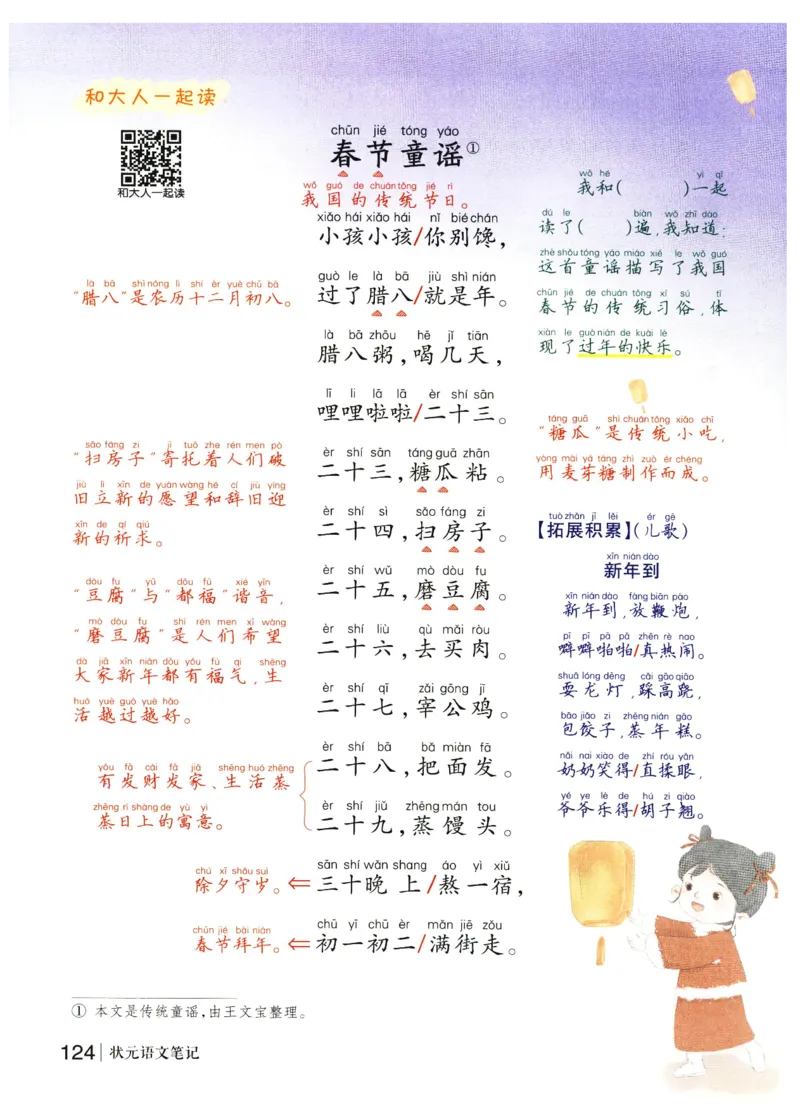 和大人一起读
和大人一起读
chūn jié tóng yáo
春节童谣①
wǒ guó de chuán tǒng jié rì
我国的传统节日。
xiǎo hái xiǎo hái nǐ bié chán
小孩小孩/你别馋，
guò le là bā jiù shì nián
过了腊八/就是年。
là bā zhōu hē jǐ tiān
腊八粥，喝几天，
lī li lā lā èr shí sān
哩哩啦啦/二十三。
èr shí sān táng guā zhān
二十三，糖瓜粘。
èr shí sì sǎo fáng zi
二十四，扫房子。
èr shí wǔ mò dòu fu
二十五，磨豆腐。
èr shí liù qù mǎi ròu
二十六，去买肉。
èr shí qī zǎi gōng jī
二十七，宰公鸡。
èr shí bā bǎ miàn fā
二十八，把面发。
èr shí jiǔ zhēng mán tou
二十九，蒸馒头。
sān shí wǎn shang áo yì xiǔ
三十晚上/熬一宿，
chū yī chū èr mǎn jiē zǒu
初一初二/满街走。
là bā shì nóng lì shí èr yuè chū bā
“腊八”是农历十二月初八。
sǎo fáng zi jì tuō zhe rén men pò
“扫房子”寄托着人们破
jiù lì xīn de yuàn wàng hé cí jiù yíng
旧立新的愿望和辞旧迎
xīn de qí qiú
新的祈求。
dòu fu yǔ dōu fú xié yīn
“豆腐”与“都福”谐音，
mò dòu fu shì rén men xī wàng
“磨豆腐”是人们希望
dà jiā xīn nián dōu yǒu fú qi shēng
大家新年都有福气，生
huó yuè guò yuè hǎo
活越过越好。
yǒu fā cái fā jiā shēng huó zhēng
有发财发家、生活蒸
zhēng rì shàng de yù yì
蒸日上的寓意。
chú xī shǒu suì
除夕守岁。⇐
chūn jié bài nián
春节拜年。⇐
wǒ hé yì qǐ
我和(　　)一起
dú le biàn wǒ zhī dào
读了(　　)遍，我知道：
zhè shǒu tóng yáo miáo xiě le wǒ guó
这首童谣描写了我国
chūn jié de chuán tǒng xí sú tǐ
春节的传统习俗，体
xiàn le guò nián de kuài lè
现了过年的快乐。
táng guā shì chuán tǒng xiǎo chī
“糖瓜”是传统小吃，
yòng mài yá táng zhì zuò ér chéng
用麦芽糖制作而成。
tuò zhǎn jī lěi ér gē
【拓展积累】(儿歌)
xīn nián dào
新年到
xīn nián dào fàng biān pào
新年到，放鞭炮，
pī pī pā pā zhēn rè nao
噼噼啪啪/真热闹。
shuǎ lóng dēng cǎi gāo qiāo
耍龙灯，踩高跷，
bāo jiǎo zi zhēng nián gāo
包饺子，蒸年糕。
nǎi nai xiào de zhí róu yǎn
奶奶笑得/直揉眼，
yé ye lè de hú zi qiào
爷爷乐得/胡子翘。
① 本文是传统童谣，由王文宝整理。
124 状元语文笔记